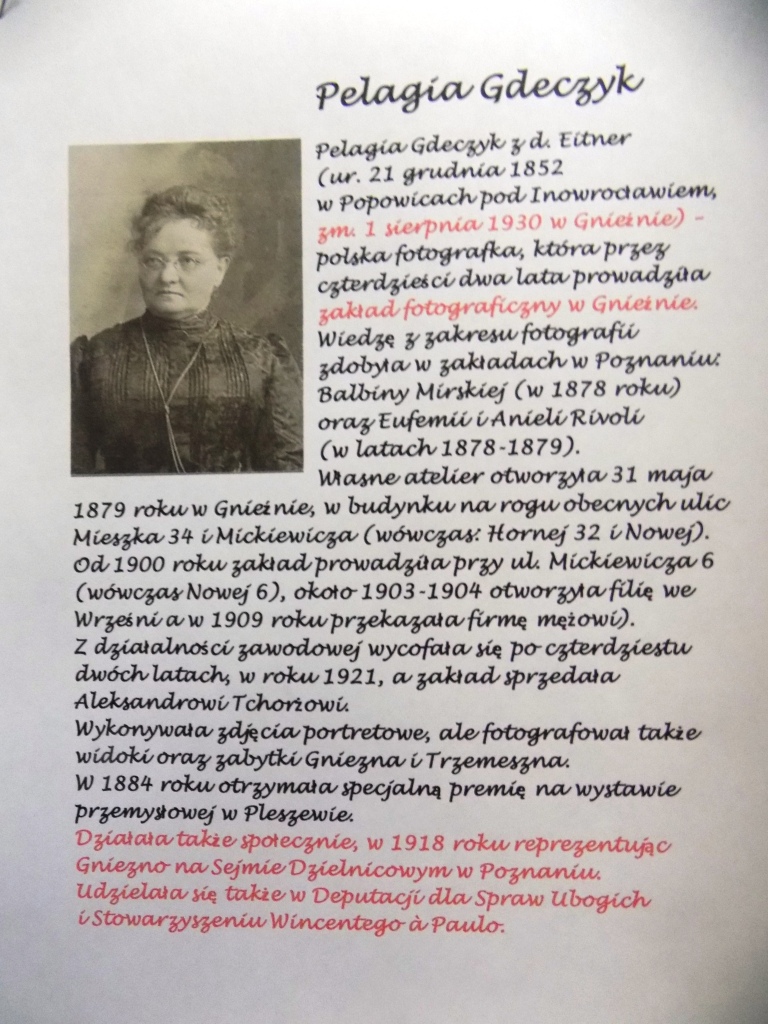 Pelagia Gdeczyk
Pelagia Gdeczyk z d. Eitner
(ur. 21 grudnia 1852
w Popowicach pod Inowrocławiem,
zm. 1 sierpnia 1930 w Gnieźnie) -
polska fotografka, która przez
czterdzieści dwa lata prowadziła
zakład fotograficzny w Gnieźnie.
Wiedzę z zakresu fotografii
zdobyła w zakładach w Poznaniu:
Balbiny Mirskiej (w 1878 roku)
oraz Eufemii i Anieli Rivoli
(w latach 1878-1879).
Własne atelier otworzyła 31 maja
1879 roku w Gnieźnie, w budynku na rogu obecnych ulic
Mieszka 34 i Mickiewicza (wówczas: Hornej 32 i Nowej).
Od 1900 roku zakład prowadziła przy ul. Mickiewicza 6
(wówczas Nowej 6), około 1903-1904 otworzyła filię we
Wrześni a w 1909 roku przekazała firmę mężowi).
Z działalności zawodowej wycofała się po czterdziestu
dwóch latach, w roku 1921, a zakład sprzedała
Aleksandrowi Tchorżowi.
Wykonywała zdjęcia portretowe, ale fotografował także
widoki oraz zabytki Gniezna i Trzemeszna.
W 1884 roku otrzymała specjalną premię na wystawie
przemysłowej w Pleszewie.
Działała także społecznie, w 1918 roku reprezentując
Gniezno na Sejmie Dzielnicowym w Poznaniu.
Udzielała się także w Deputacji dla Spraw Ubogich
i Stowarzyszeniu Wincentego à Paulo.